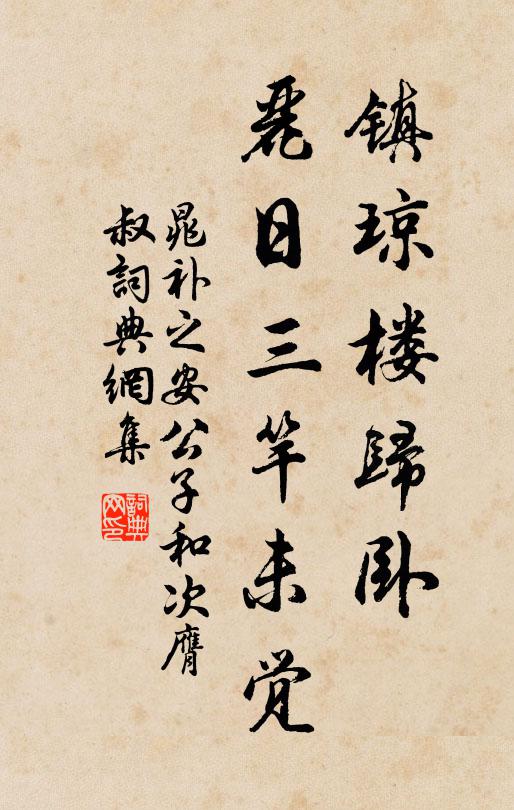 镇琼楼歸卧
麗日三竿未觉
晁补之安公子和次膺
叔詞典網集
詞典
网印